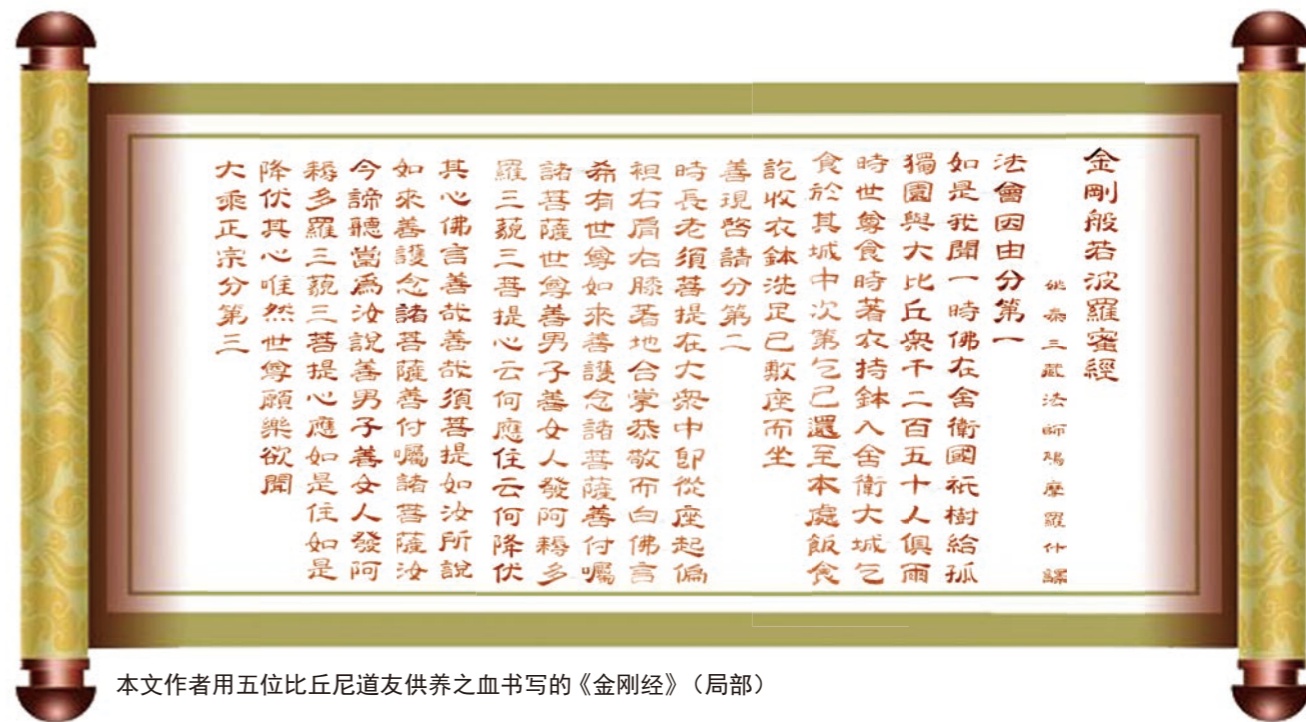 金剛般若波羅蜜經
姚秦三藏法師鳩摩羅什譯
法會因由分第一
如是我聞一時佛在舍衛國祇樹給孤
獨園與大比丘衆千二百五十人俱爾
時世尊食時著衣持鉢入舍衛大城乞
食於其城中次第乞已還至本處飯食
訖收衣鉢洗足已敷座而坐
善現啓請分第二
時長老須菩提在大衆中卽從座起偏
袒右肩右膝著地合掌恭敬而白佛言
希有世尊如來善護念諸菩薩善付囑
諸菩薩世尊善男子善女人發阿耨多
羅三藐三菩提心云何應住云何降伏
其心佛言善哉善哉須菩提如汝所說
如來善護念諸菩薩善付囑諸菩薩汝
今諦聽當爲汝說善男子善女人發阿
耨多羅三藐三菩提心應如是住如是
降伏其心唯然世尊願樂欲聞
大乘正宗分第三
本文作者用五位比丘尼道友供养之血书写的《金刚经》（局部）